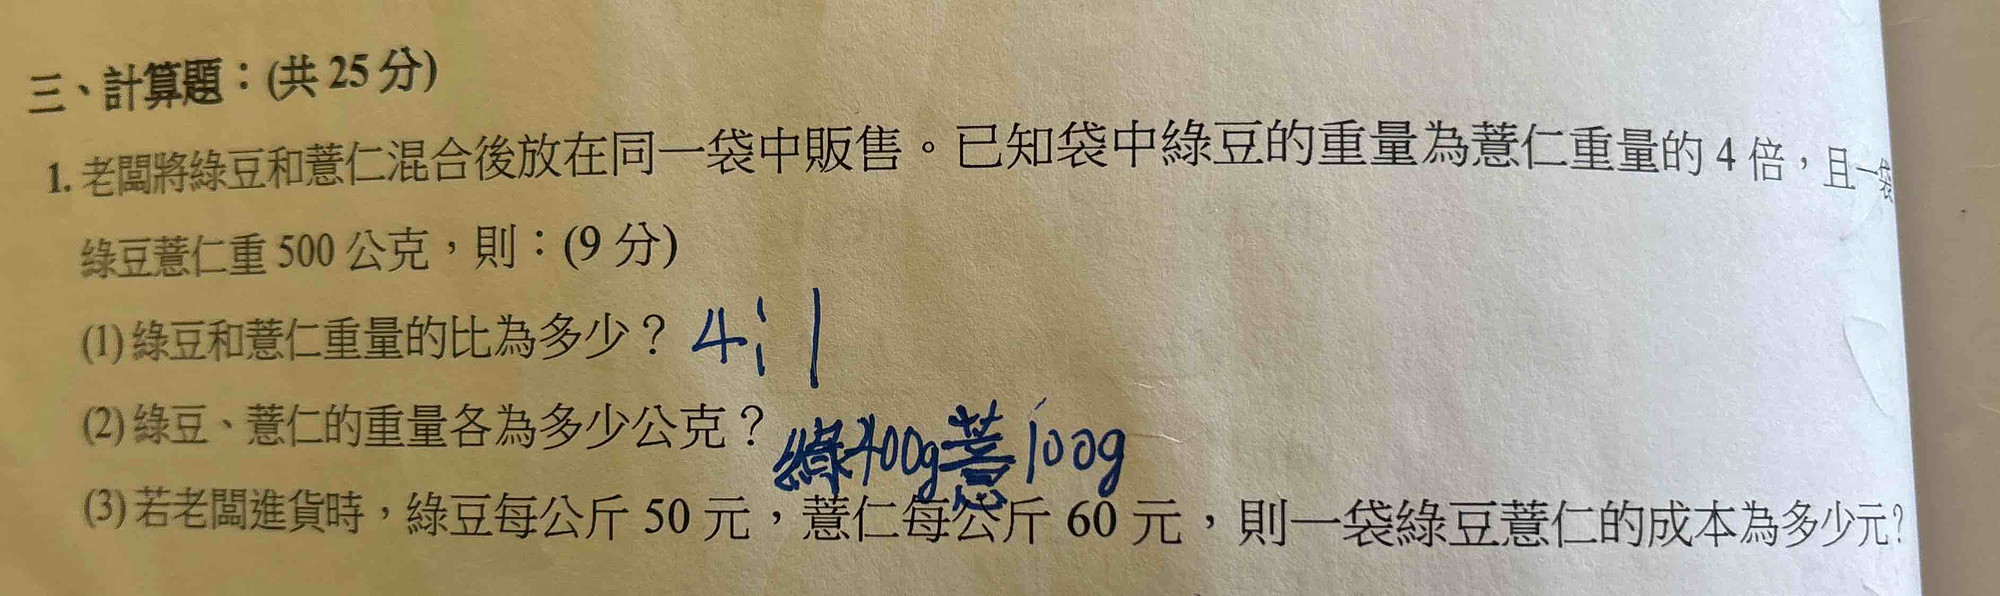 三、計算題：(共 25 分)
1. 老闆將綠豆和薏仁混合後放在同一袋中販售。已知袋中綠豆的重量為薏仁重量的 4 倍，且一袋
綠豆薏仁重 500 公克，則：(9 分)
(1) 綠豆和薏仁重量的比為多少？ 4:1
(2) 綠豆、薏仁的重量各為多少公克？ 綠400g薏100g
(3) 若老闆進貨時，綠豆每公斤 50 元，薏仁每公斤 60 元，則一袋綠豆薏仁的成本為多少元?